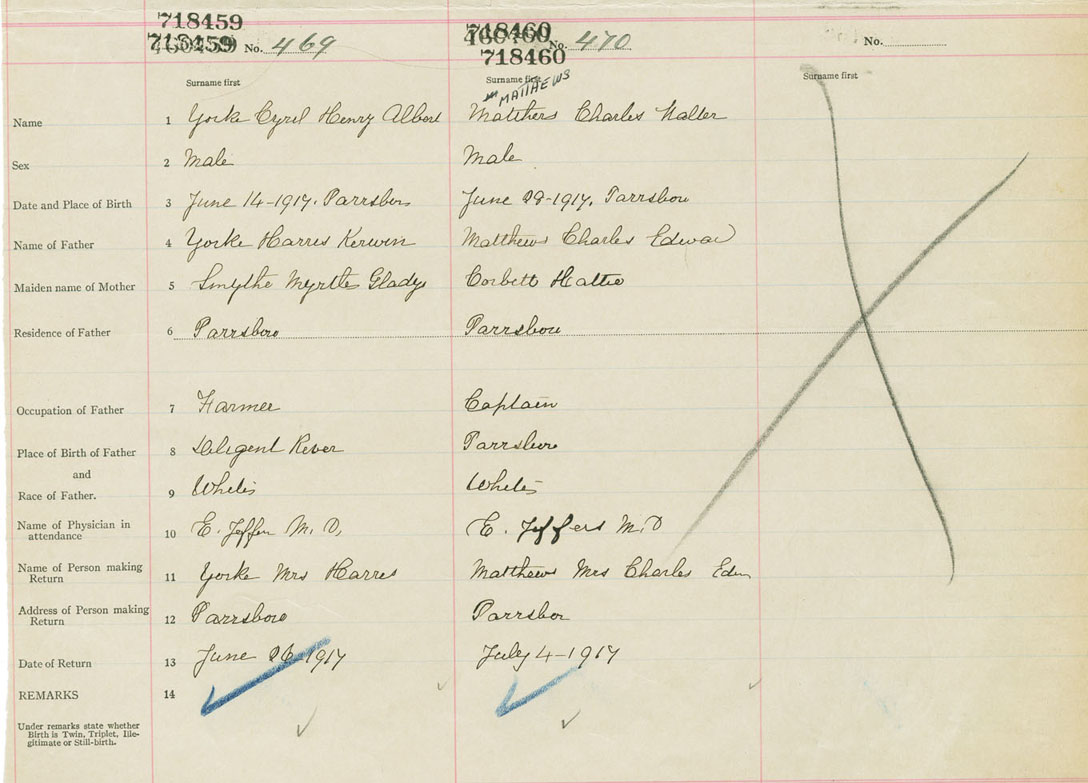 718459 718460
715459 No. 469 No. 470 No.
718460
Surname first Surname first Surname first
MATTHEWS
Name 1 Yorke Cyril Henry Albert Matthers Charles Walter
Sex 2 Male Male
Date and Place of Birth 3 June 14-1917. Parrsboro June 28-1917. Parrsboro
Name of Father 4 Yorke Harris Kerwin Matthews Charles Edward
Maiden name of Mother 5 Smythe Myrtle Gladys Corbett Hattie
Residence of Father 6 Parrsboro Parrsboro
Occupation of Father 7 Farmer Captain
Place of Birth of Father 8 Diligent River Parrsboro
and
Race of Father. 9 White White
Name of Physician in 10 E. Jeffers M.D. E. Jeffers M.D
attendance
Name of Person making 11 Yorke Mrs Harris Matthews Mrs Charles Edw
Return
Address of Person making 12 Parrsboro Parrsboro
Return
Date of Return 13 June 26-1917 July 4-1917
REMARKS 14
Under remarks state whether
Birth is Twin, Triplet, Ille-
gitimate or Still-birth.